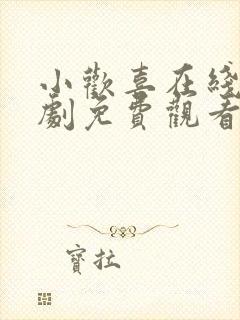 小歡喜在綫
劇免費觀看
寶拉